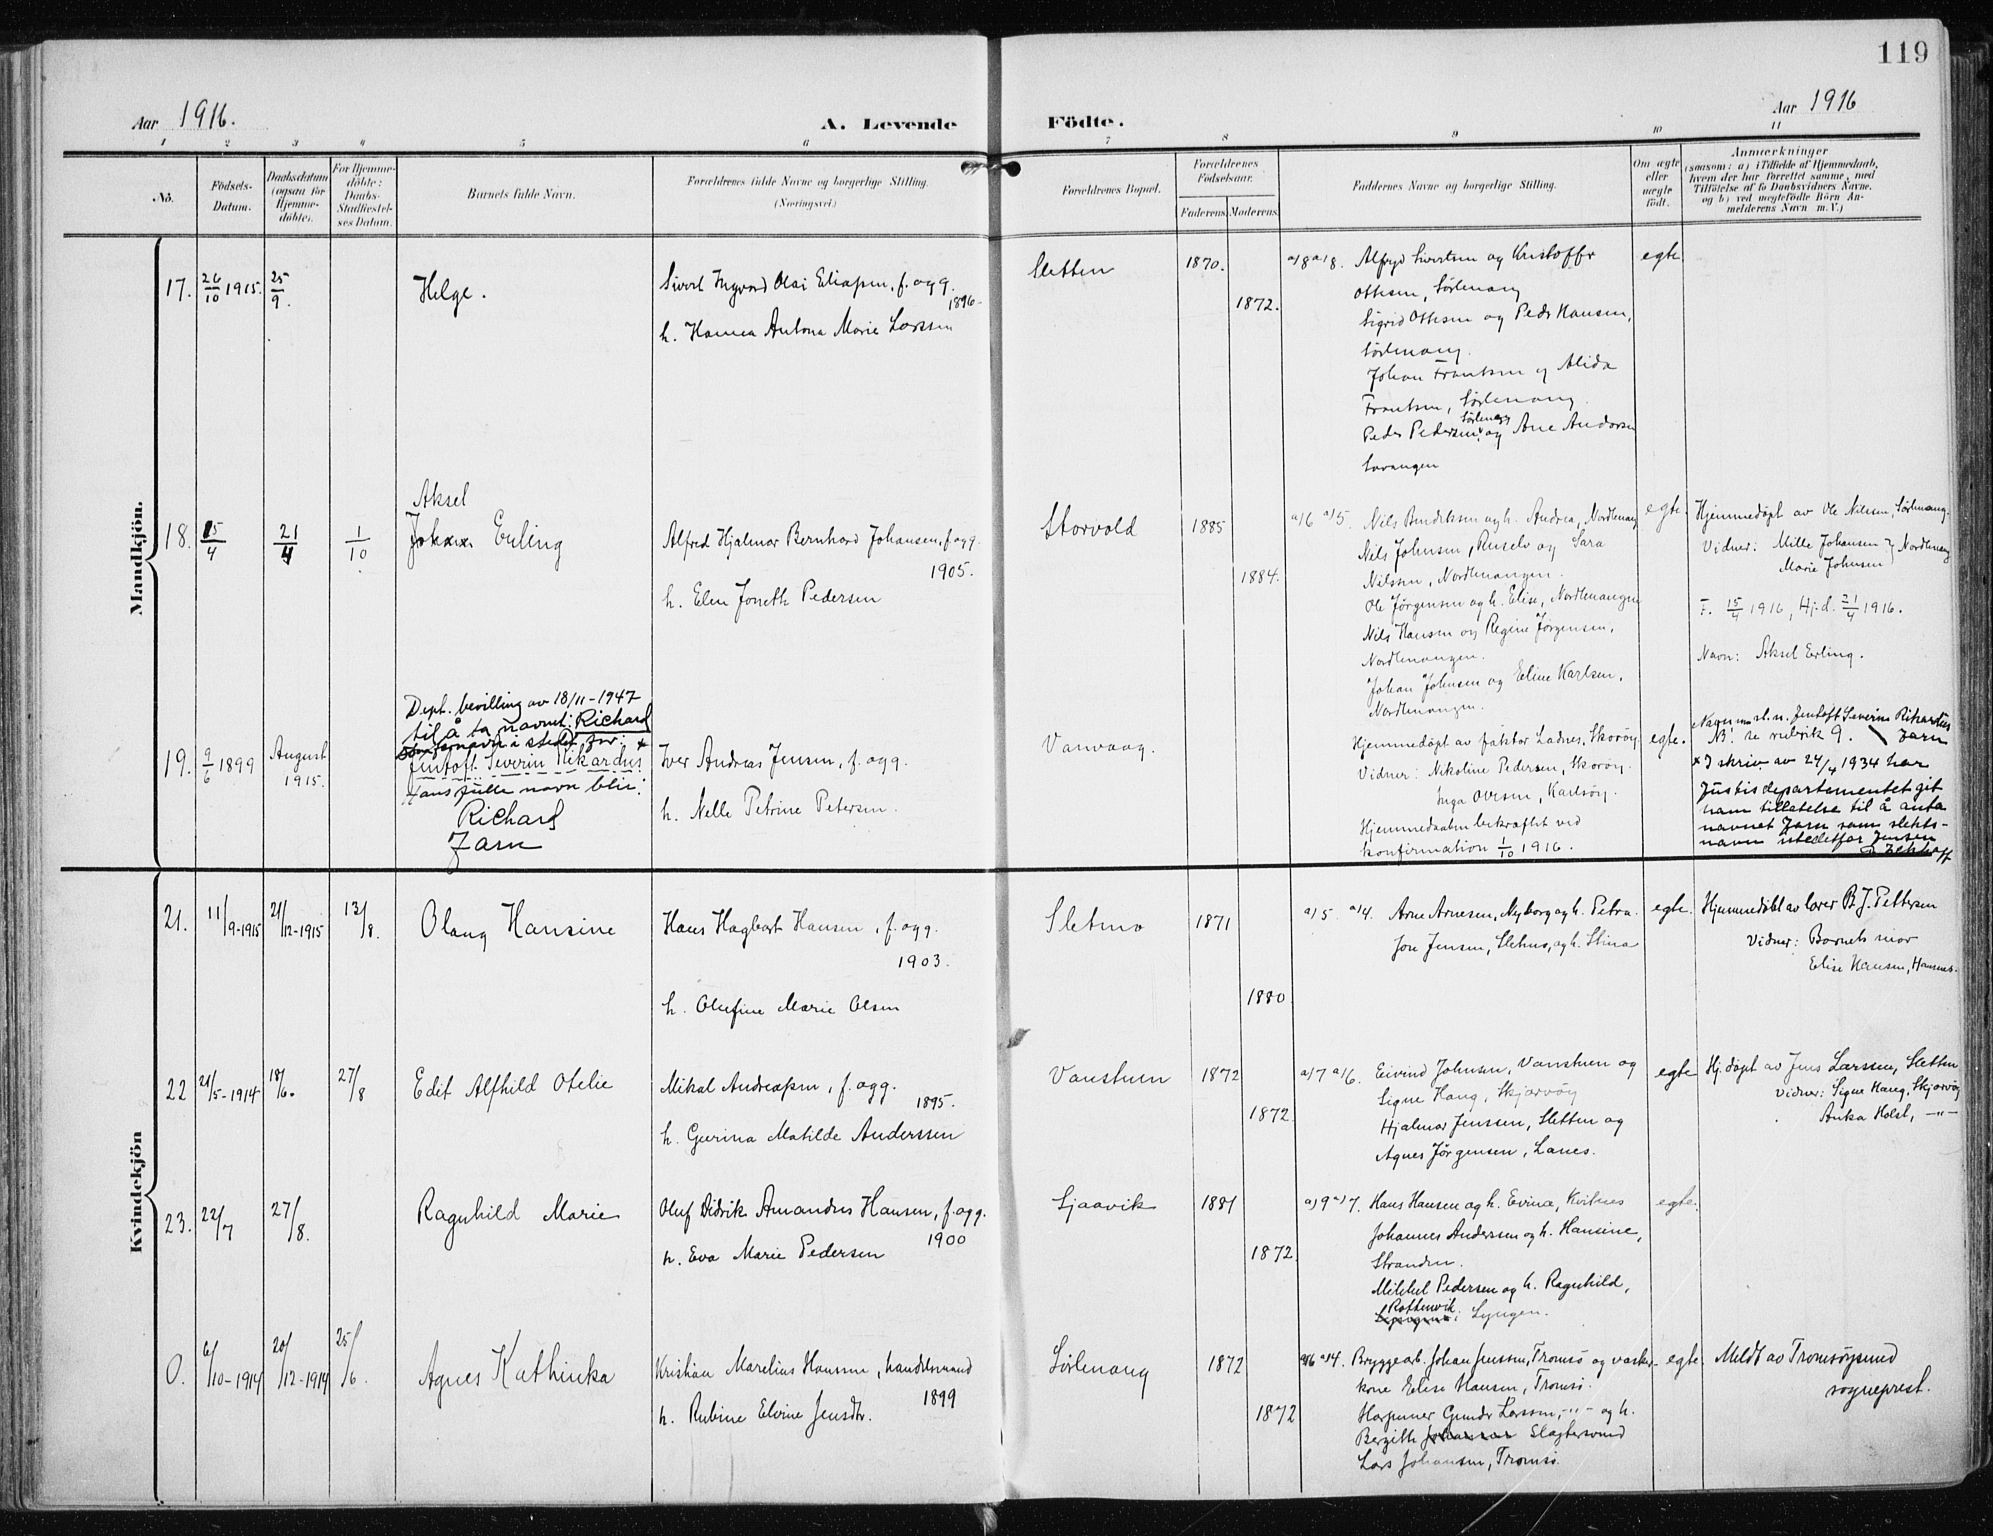 119
Aar 1916.
A. Levende
Födte.
Aar 1916
1 2 3 4 5 6 7 8 9 10 11
No.
Födsels-
Datum.
Daabsdatum
(ogsaa for
Hjemme-
döbte).
For Hjemme-
döbte:
Daabs-
Stadfæstel-
ses Datum.
Barnets fulde Navn.
Forældrenes fulde Navne og borgerlige Stilling.
(Næringsvei.)
Forældrenes Bopæl.
Forældrenes
Födselsaar.
Faderens. Moderens.
Faddernes Navne og borgerlige Stilling.
Om ægte
eller
uægte
födt.
Anmærkninger
(saasom: a) i Tilfælde af Hjemmedaab,
hvem der har forrettet samme, med
Tilföielse af to Daabsvidners Navne.
og b) ved uægtefödte Börn An-
melderens Navn m. V.)
Mandkjön.
17. 26/10 1915. 25/9.
Helge.
Sivert Ingvard Olai Eliassen, f. og g.
1896-
h. Hanna Antona Marie Larssen
Sletten
1870.
1872.
a) 8 a) 8.
Alfred Sivertsen og Kristoffer
Ottesen, Sörlenang
Sigrid Ottesen og Peder Hansen,
Sörlenang.
Johan Frantsen og Alida
Frantsen, Sörlenang.
Peder Pedersen, Sörlenang og Ane Andersen
egte
18. 15/4 21/4 1/10
Aksel
Johan Erling
Alfred Hjalmar Bernhard Johansen, f. og g.
1905.
h. Elen Joneth Pedersen
Storvold
1885
1884.
a) 6 a) 5.
Nils Bendiksen og h. Andrea, Nordlenang
Nils Johnsen, Ruselv og Sara
Nilssen, Nordlenangen.
Ole Jørgensen og h. Elise, Nordlenangen
Nils Hansen og Regine Jørgensen,
Nordlenangen.
Johan Johnsen og Eline Karlsen,
Nordlenangen.
egte.
Hjemmedøpt av Ole Nilssen, Sörlenang.
Vidner: Mille Johansen } Nordlenang
Marie Johnsen
F. 15/4 1916, Hj.d. 21/4 1916.
Navn: Aksel Erling.
19. 9/6 1899 August
1915.
Dept. bevilling av 18/11-1947
til å ta navnet: Richard
som fornavn i stedet for: x
Jentoft Severin Rikardus
Hans fulle navn blir:
Richard
Jarn
Iver Andreas Jensen, f. og g.
h. Nelle Petrine Petersen.
Vanvaag.
Hjemmedøpt av faktor Ladnes, Skorøy.
Vidner: Nikoline Pedersen, Skorøy.
Inga Ovesen, Karlsöy.
Hjemmedaaben bekræftet ved
konfirmation 1/10 1916.
egte.
Navn: Jentoft Severin Rikardus
Jarn
NB. se rubrik 9.
x I skriv av 24/4 1934 har
Justisdepartementet git
ham tillatelse til å anta
navnet Jarn som slekts-
navn istedetfor Jensen
Kvindekjön
21. 11/9-1915 21/12-1915 13/8.
Olaug Hansine
Hans Hagbart Hansen, f. og g.
1903.
h. Olufine Marie Olsen
Sletmo
1871
1880
a) 5. a) 4.
Arne Arnesen, Nyborg og h. Petra.
Jon Jensen, Sletmo, og h. Stina
egte.
Hjemmedöbt av lærer B. J. Pettersen
Vidner: Barnets mor
Elise Hansen, Hansnes.
22 21/5-1914 18/6. 27/8
Edit Alfhild Otelie
Mikal Andreassen, f. og g.
1895.
h. Gurina Matilde Anderssen
Vanstuen
1872
1872.
a) 7 a) 6.
Eivind Johnsen, Vanstuen og
Signe Haug, Skjærvöy
Hjalmar Jenssen, Sletten og
Agnes Jørgensen, Lanes.
egte
Hj. døpt av Jens Larssen, Sletten
Vidner: Signe Haug, Skjærvöy
Anka Holst, -"-
23. 22/7 27/8.
Ragnhild Marie
Oluf Didrik Amandus Hansen, f. og g.
1900
h. Eva Marie Pedersen
Sjaavik
1881
1872.
a) 9 a) 7.
Hans Hansen og h. Evina, Kvitnes
Johannes Anderssen og h. Hansine,
Stranden.
Mikkel Pedersen og h. Ragnhild,
Rottenvik. Lyngen.
egte.
0. 6/10-1914 20/12-1914 25/6.
Agnes Kathinka
Kristian Marelius Hansen, handelsmand
1899
h. Rubine Elvine Jensdtr.
Sörlenang
1872
1872
a) 6 a) 4.
Bryggearb. Johan Jenssen, Tromsø og vasker-
kone Elise Hansen, Tromsø.
Harpuner Gunder Larssen, -"- og h.
Bergith Johansen Slagtersvend
Lars Johansen, Tromsø.
egte.
Meldt av Tromsöysund
sogneprest.